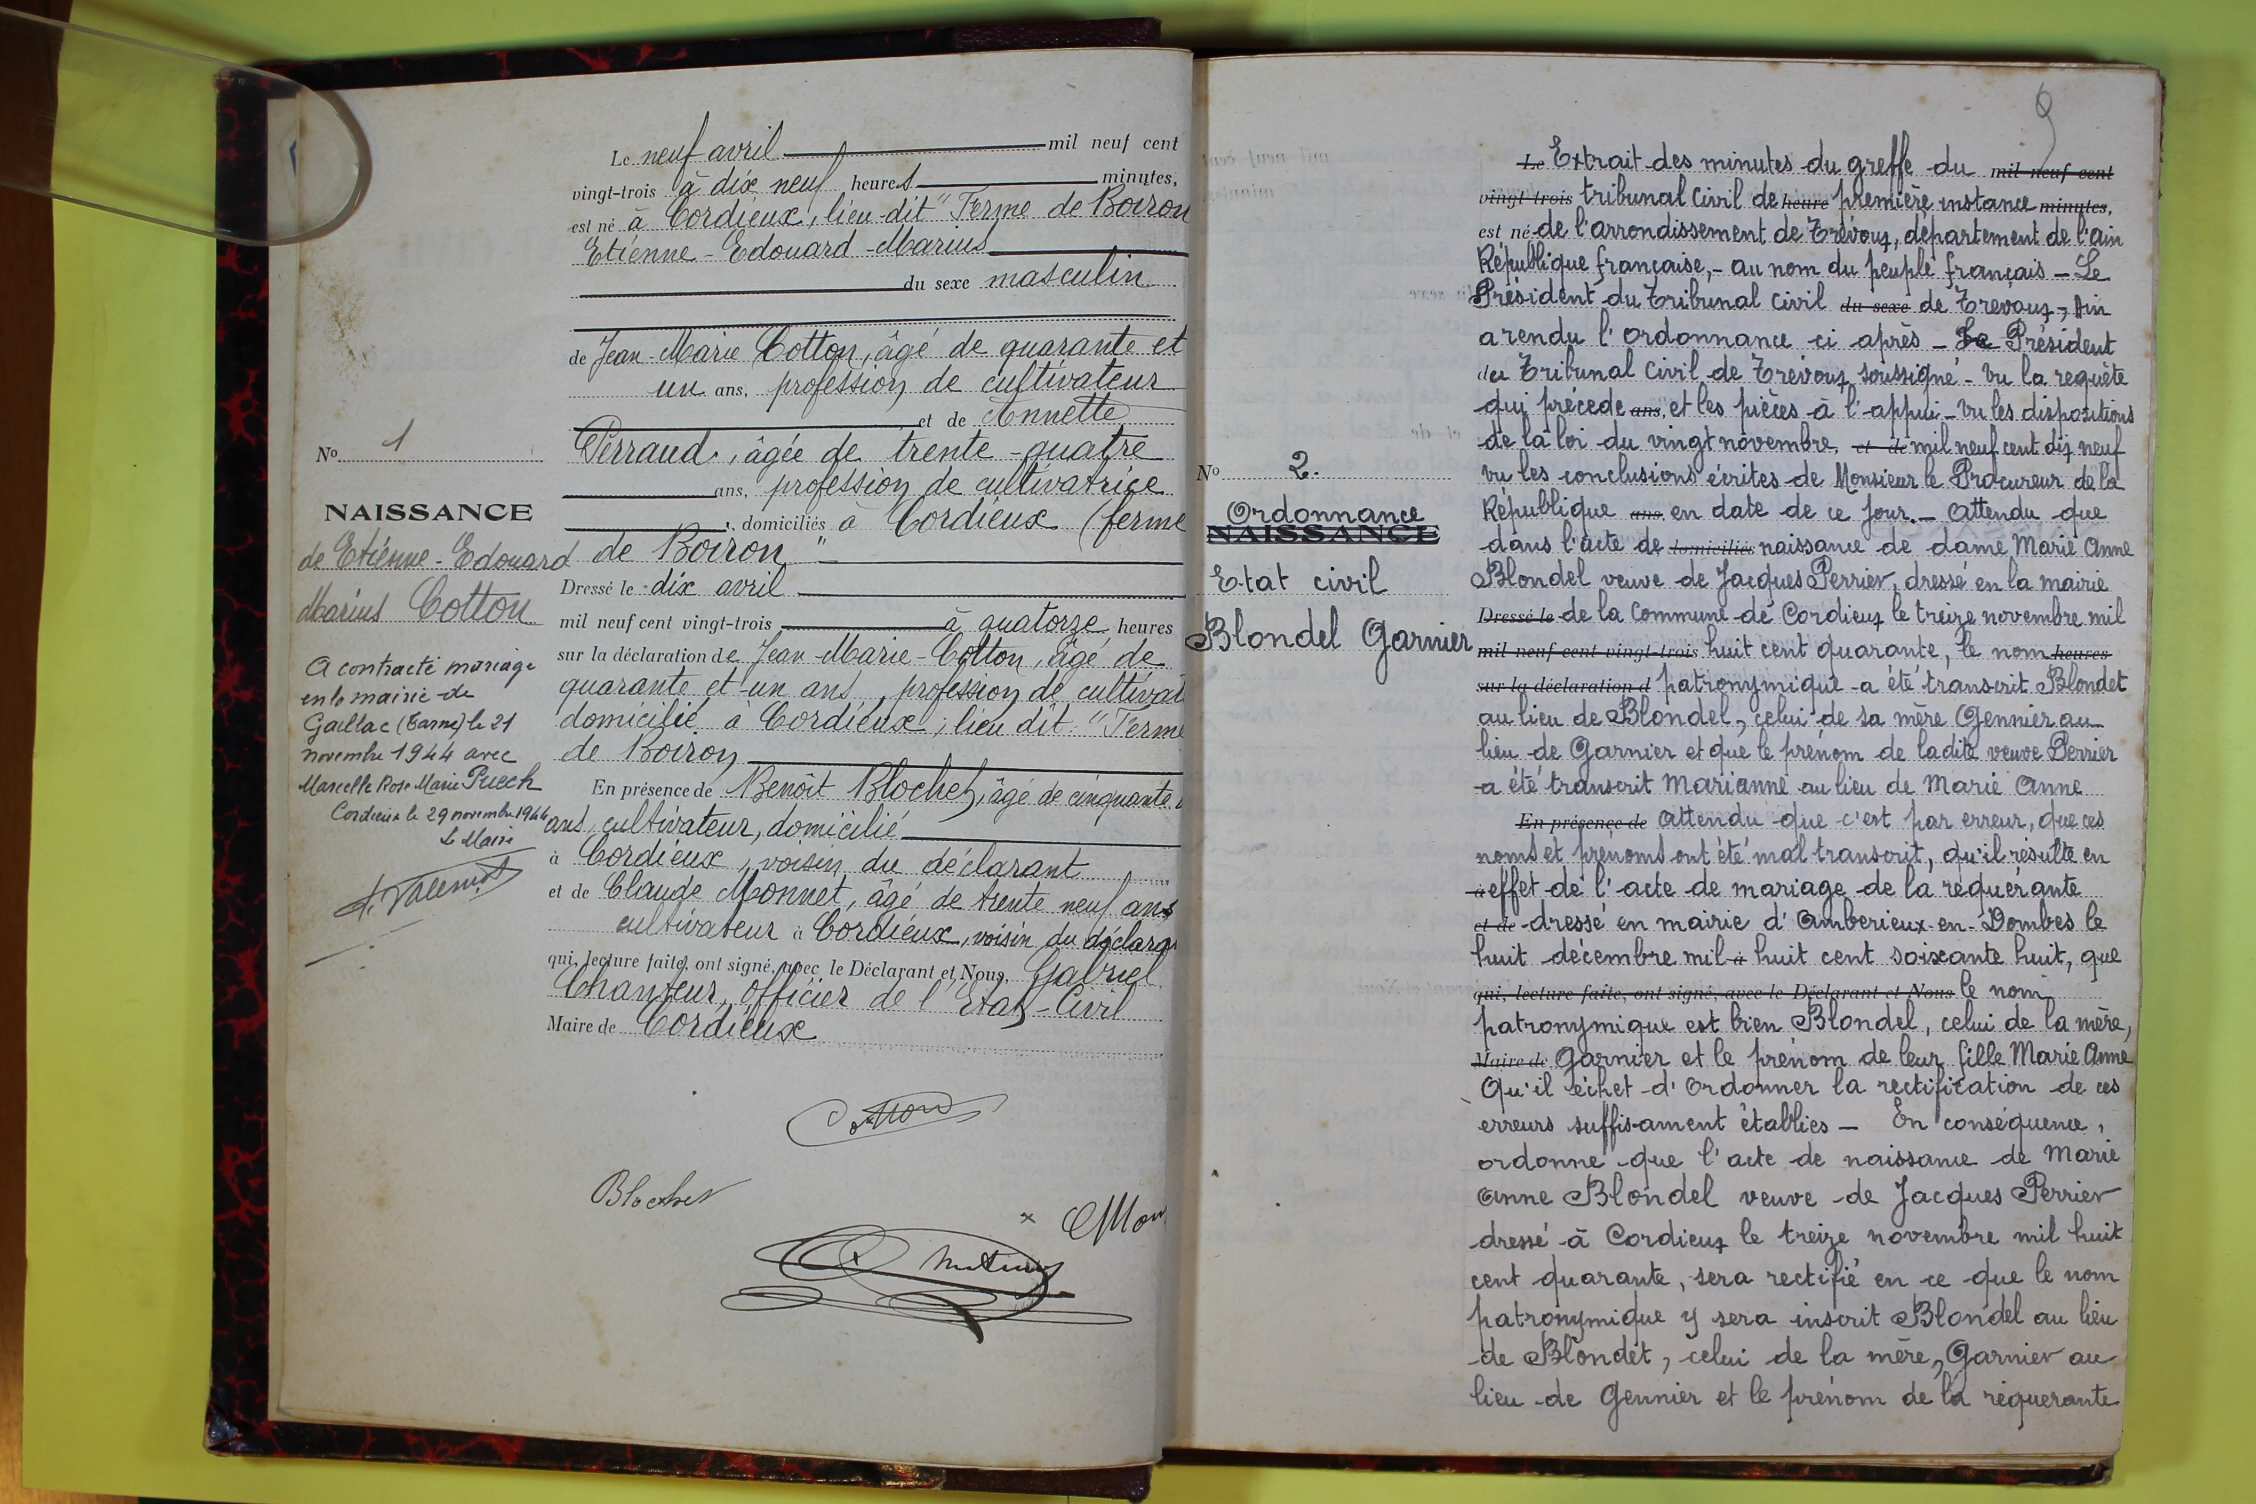 Le neuf avril mil neuf cent
vingt-trois à dix neuf heures minutes,
est né à Cordieux, lieu-dit "Ferme de Boiron
Etienne-Edouard-Marius
du sexe masculin
de Jean-Marie Cotton, âgé de quarante et
un ans, profession de cultivateur
et de Annette
Perraud, âgée de trente-quatre
ans, profession de cultivatrice
, domiciliés à Cordieux (ferme
de Boiron"
Dressé le dix avril
mil neuf cent vingt-trois à quatorze heures
sur la déclaration de Jean-Marie-Cotton, âgé de
quarante et un ans, profession de cultivat
domicilié à Cordieux, lieu dit "Ferme
de Boiron
En présence de Benoît Blochet, âgé de cinquante
ans, cultivateur, domicilié
à Cordieux, voisin du déclarant
et de Claude Monnet, âgé de trente neuf ans
cultivateur à Cordieux, voisin du déclara
qui, lecture faite, ont signé, avec le Déclarant et Nous, Gabriel
Chanteur, officier de l'Etat-Civil
Maire de Cordieux
Cotton
Blochet
x CMon
No 1
NAISSANCE
de Etienne-Edouard
Marius Cotton
A contracté mariage
en la mairie de
Gaillac (Tarn) le 21
novembre 1944 avec
Marcelle Rose Marie Puech
Cordieux le 29 novembre 1944
Le Maire
9
No 2.
Ordonnance
NAISSANCE
Etat civil
Blondel Garnier
Le Extrait des minutes du greffe du mil neuf cent
vingt-trois tribunal civil de heure première instance minutes,
est né de l'arrondissement de Trévoux, département de l'ain
République française, - au nom du peuple français - Le
Président du Tribunal civil du sexe de Trevoux, Ain
a rendu l'ordonnance ci après - Le Président
du Tribunal Civil de Trévoux soussigné - Vu la requête
qui précede ans, et les pièces à l'appui - vu les dispositions
de la loi du vingt novembre et de mil neuf cent dix neuf
vu les conclusions écrites de Monsieur le Procureur de la
République ans, en date de ce jour. - attendu que
dans l'acte de domiciliés naissance de dame Marie Anne
Blondel veuve de Jacques Perrier, dressé en la mairie
Dressé le de la commune de Cordieux le treize novembre mil
mil neuf cent vingt-trois huit cent quarante, le nom heures
sur la déclaration d patronymique a été transcrit Blondet
au lieu de Blondel, celui de sa mère Gennier au
lieu de Garnier et que le prénom de ladite veuve Perrier
a été transcrit Marianne au lieu de Marie Anne
En présence de attendu que c'est par erreur, que ces
noms et prénoms ont été mal transcrit, qu'il résulte en
à effet de l'acte de mariage de la requérante
et de dressé en mairie d'Amberieux-en-Dombes le
huit décembre mil à huit cent soixante huit, que
qui, lecture faite, ont signé, avec le Déclarant et Nous le nom
patronymique est bien Blondel, celui de la mère,
Maire de Garnier et le prénom de leur fille Marie Anne
Qu'il échet d'ordonner la rectification de ces
erreurs suffisament établies - En conséquence,
ordonne que l'acte de naissance de Marie
Anne Blondel veuve de Jacques Perrier
dressé à Cordieux le treize novembre mil huit
cent quarante, sera rectifié en ce que le nom
patronymique y sera inscrit Blondel au lieu
de Blondet, celui de la mère, Garnier au
lieu de Gennier et le prénom de la réquerante